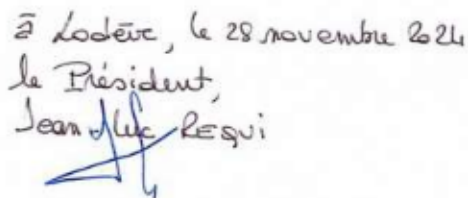 à Lodève, le 28 novembre 2024
le Président,
Jean Luc REQUI